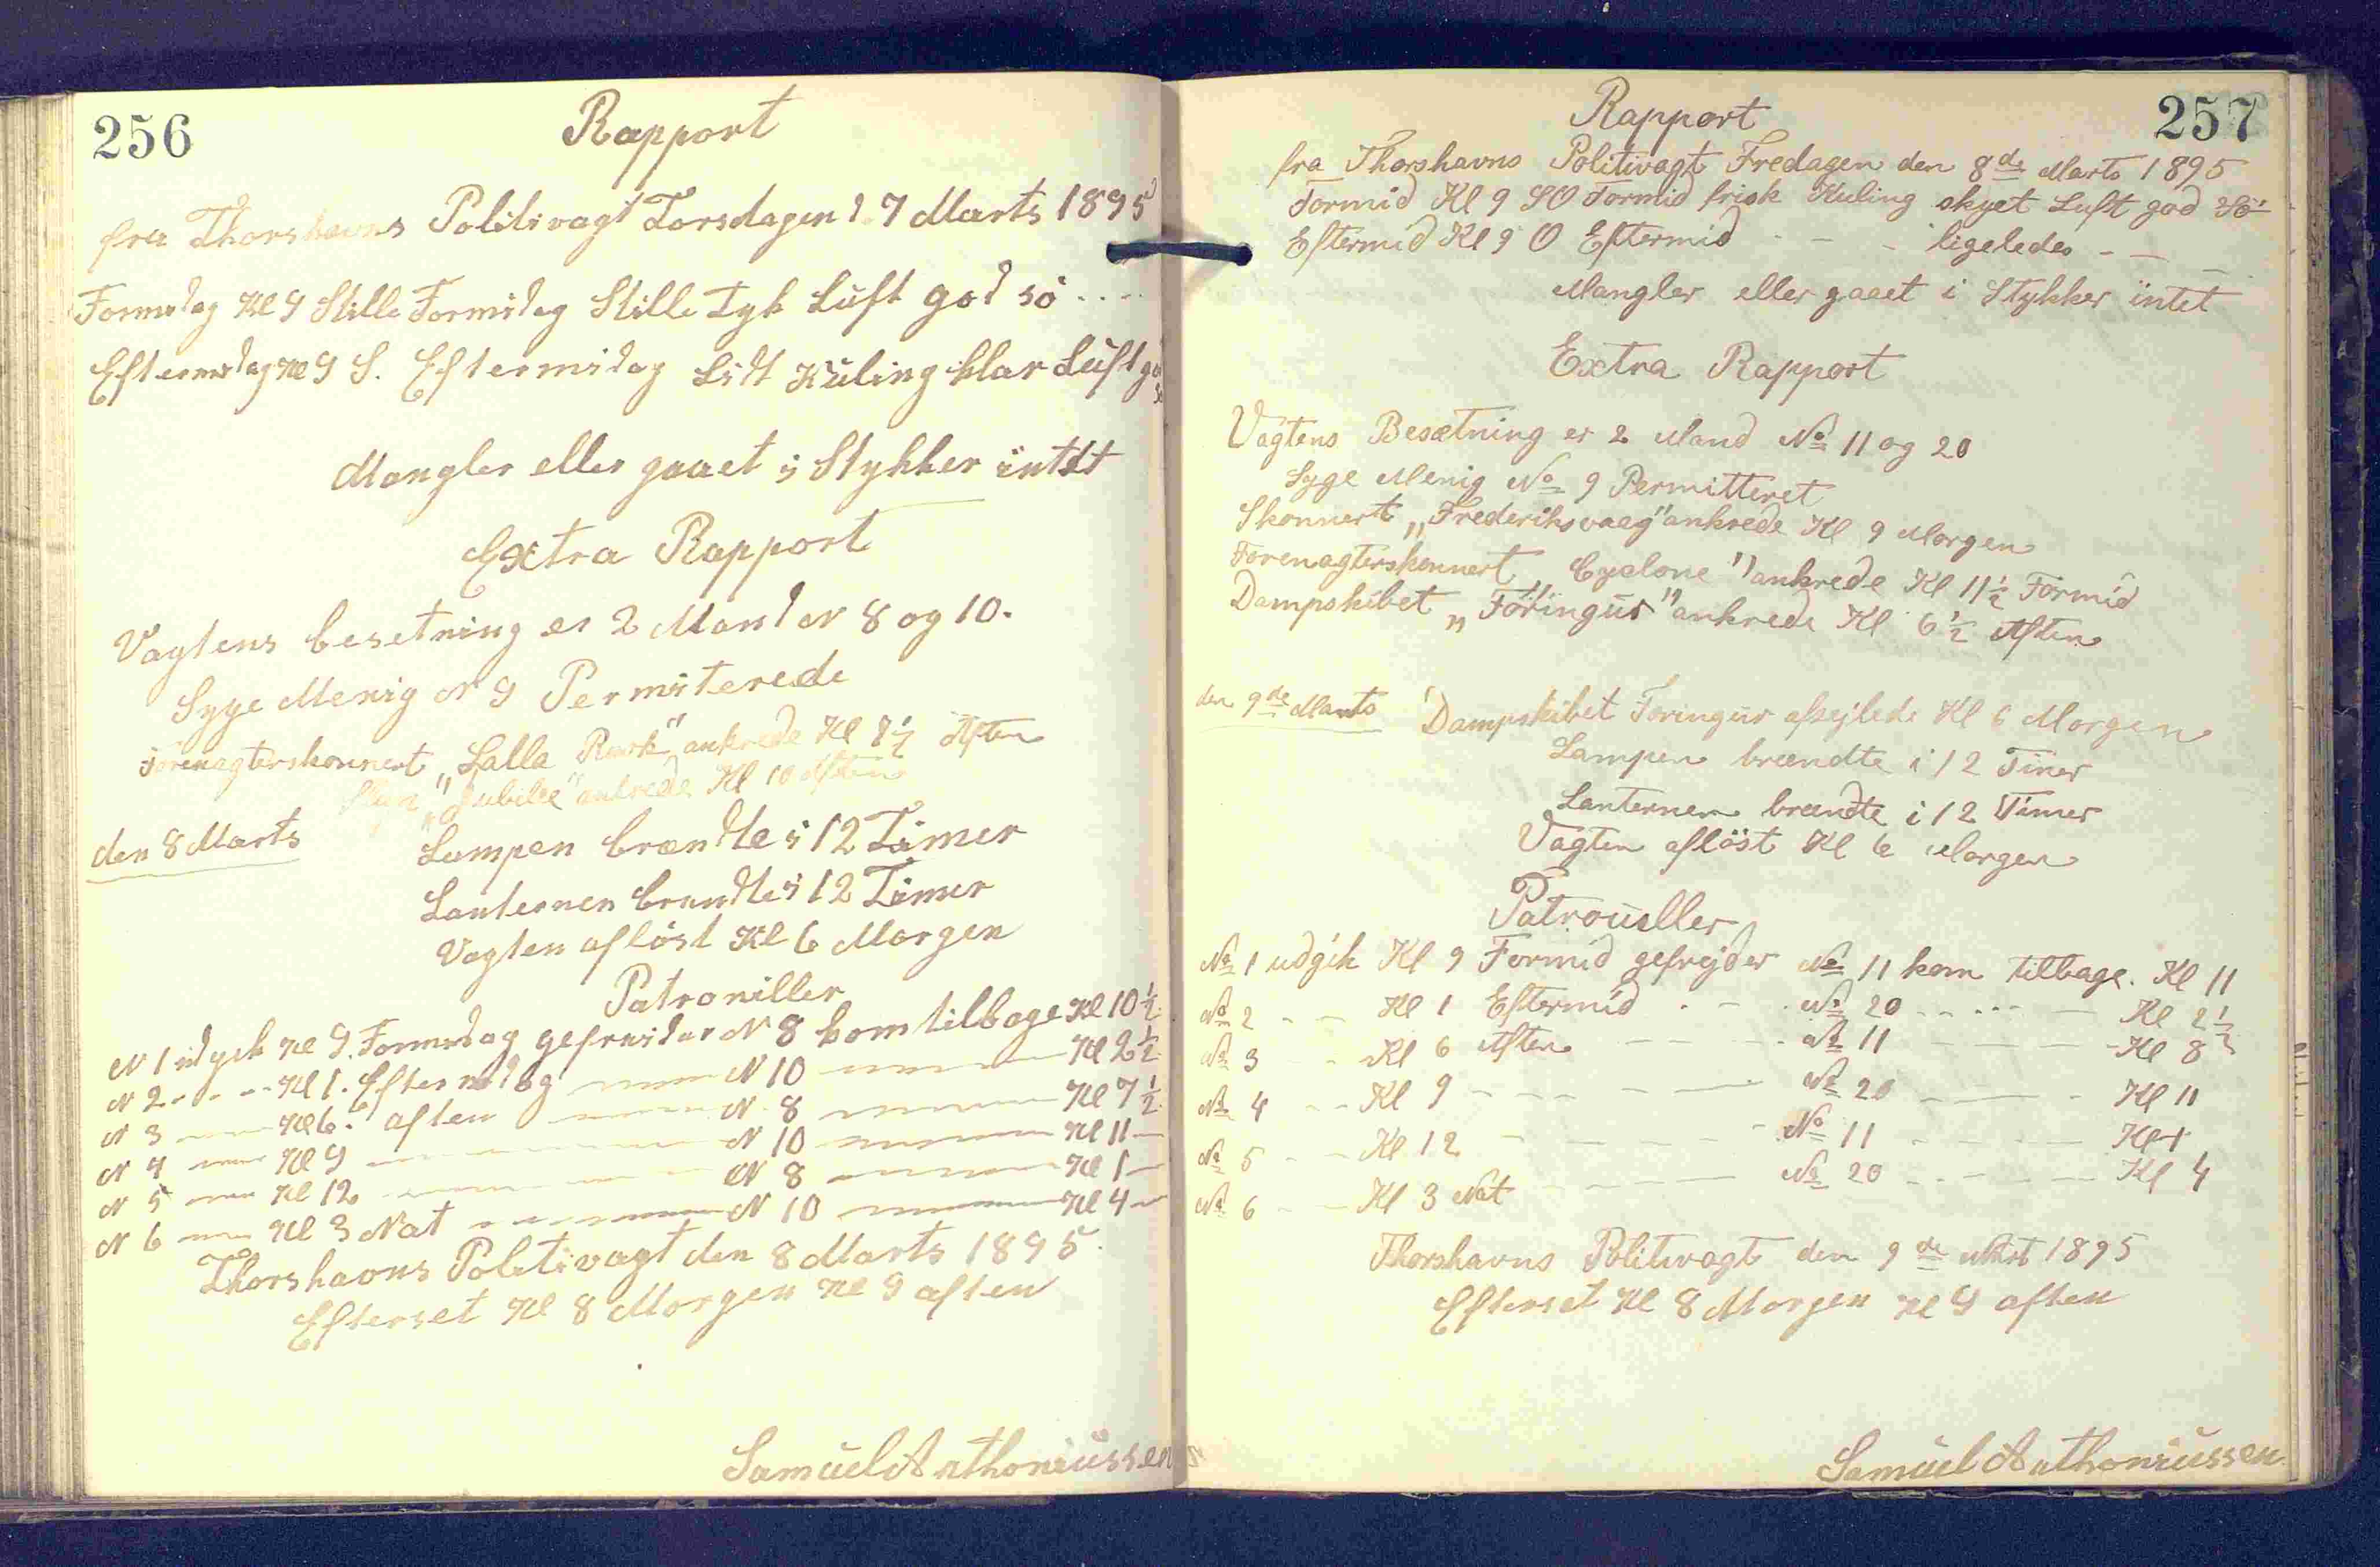 256
Rapport
fra Thorshavns Politivagt Torsdagen d. 7 Marts 1895
Formidag Kl 9 Stille Formidag Stille Tyk Luft god sö
Eftermidag Kl 9 S. Eftermidag Lidt Kuling klar Luft go
Mangler eller gaaet i Stykker intet
Extra Rapport
Vagtens besetning er 2 Mand N 8 og 10.
Syge Menig N 9 Permiterede
Forenagterskonnert „Lalla Rook" ankrede Kl 8 1/2 Aften
"Jubilee" ankrede Kl 10 Aften
den 8 Marts Lampen brændte i 12 Timer
Lanternen brændte i 12 Timer
Vagten aflöst Kl 6 Morgen
Patroniller
N 1 udgek Kl 9. Formidag gefreider N 8 kom tilbage Kl 10 1/2
N 2 - - - Kl 1. Eftermidag - N 10 - Kl 2 1/2
N 3 - Kl 6. aften - N 8 - Kl 7 1/2
N 4 - Kl 9 - N 10 - Kl 11 -
N 5 - Kl 12 - N 8 - Kl 1 -
N 6 - Kl 3 Nat - N 10 - Kl 4 -
Thorshavns Politivagt den 8 Marts 1895.
Efterset Kl 8 Morgen Kl 9 aften
Samuel Anthoniussen
257
Rapport
fra Thorshavns Politivagt Fredagen den 8de Marts 1895
Formid Kl 9 SO Formid frisk Kuling skyet Luft god Sö
Eftermid Kl 9 O Eftermid - - - ligeledes - - -
Mangler eller gaaet i Stykker intet
Extra Rapport
Vagtens Besætning er 2 Mand No 11 og 20
Syge Menig No 9 Permitteret
Skonnert „Frederiksvaag" ankrede Kl 9 Morgen
Forenagterskonnert „Cyclone" ankrede Kl 11 1/2 Formid
Dampskibet „Föringur" ankrede Kl 6 1/2 Aften
den 9de Marts Dampskibet Foringur afsejlede Kl 6 Morgen
Lampen brændte i 12 Timer
Lanternen brændte i 12 Timer
Vagten aflöst Kl 6 Morgen
Patrouller
No 1 udgik Kl 9 Formid gefrejder No 11 kom tilbage. Kl 11
No 2 - - Kl 1 Eftermid - - No 20 - - - Kl 2 1/2
No 3 - - Kl 6 Aften - - No 11 - - - Kl 8
No 4 - - Kl 9 - - - No 20 - - Kl 11
No 5 - - Kl 12 - - - No 11 - - - Kl 1
No 6 - - Kl 3 Nat - - - No 20 - - - Kl 4
Thorshavns Politivagt den 9de Marts 1895
Efterset Kl 8 Morgen Kl 9 aften
Samuel Anthoniussen